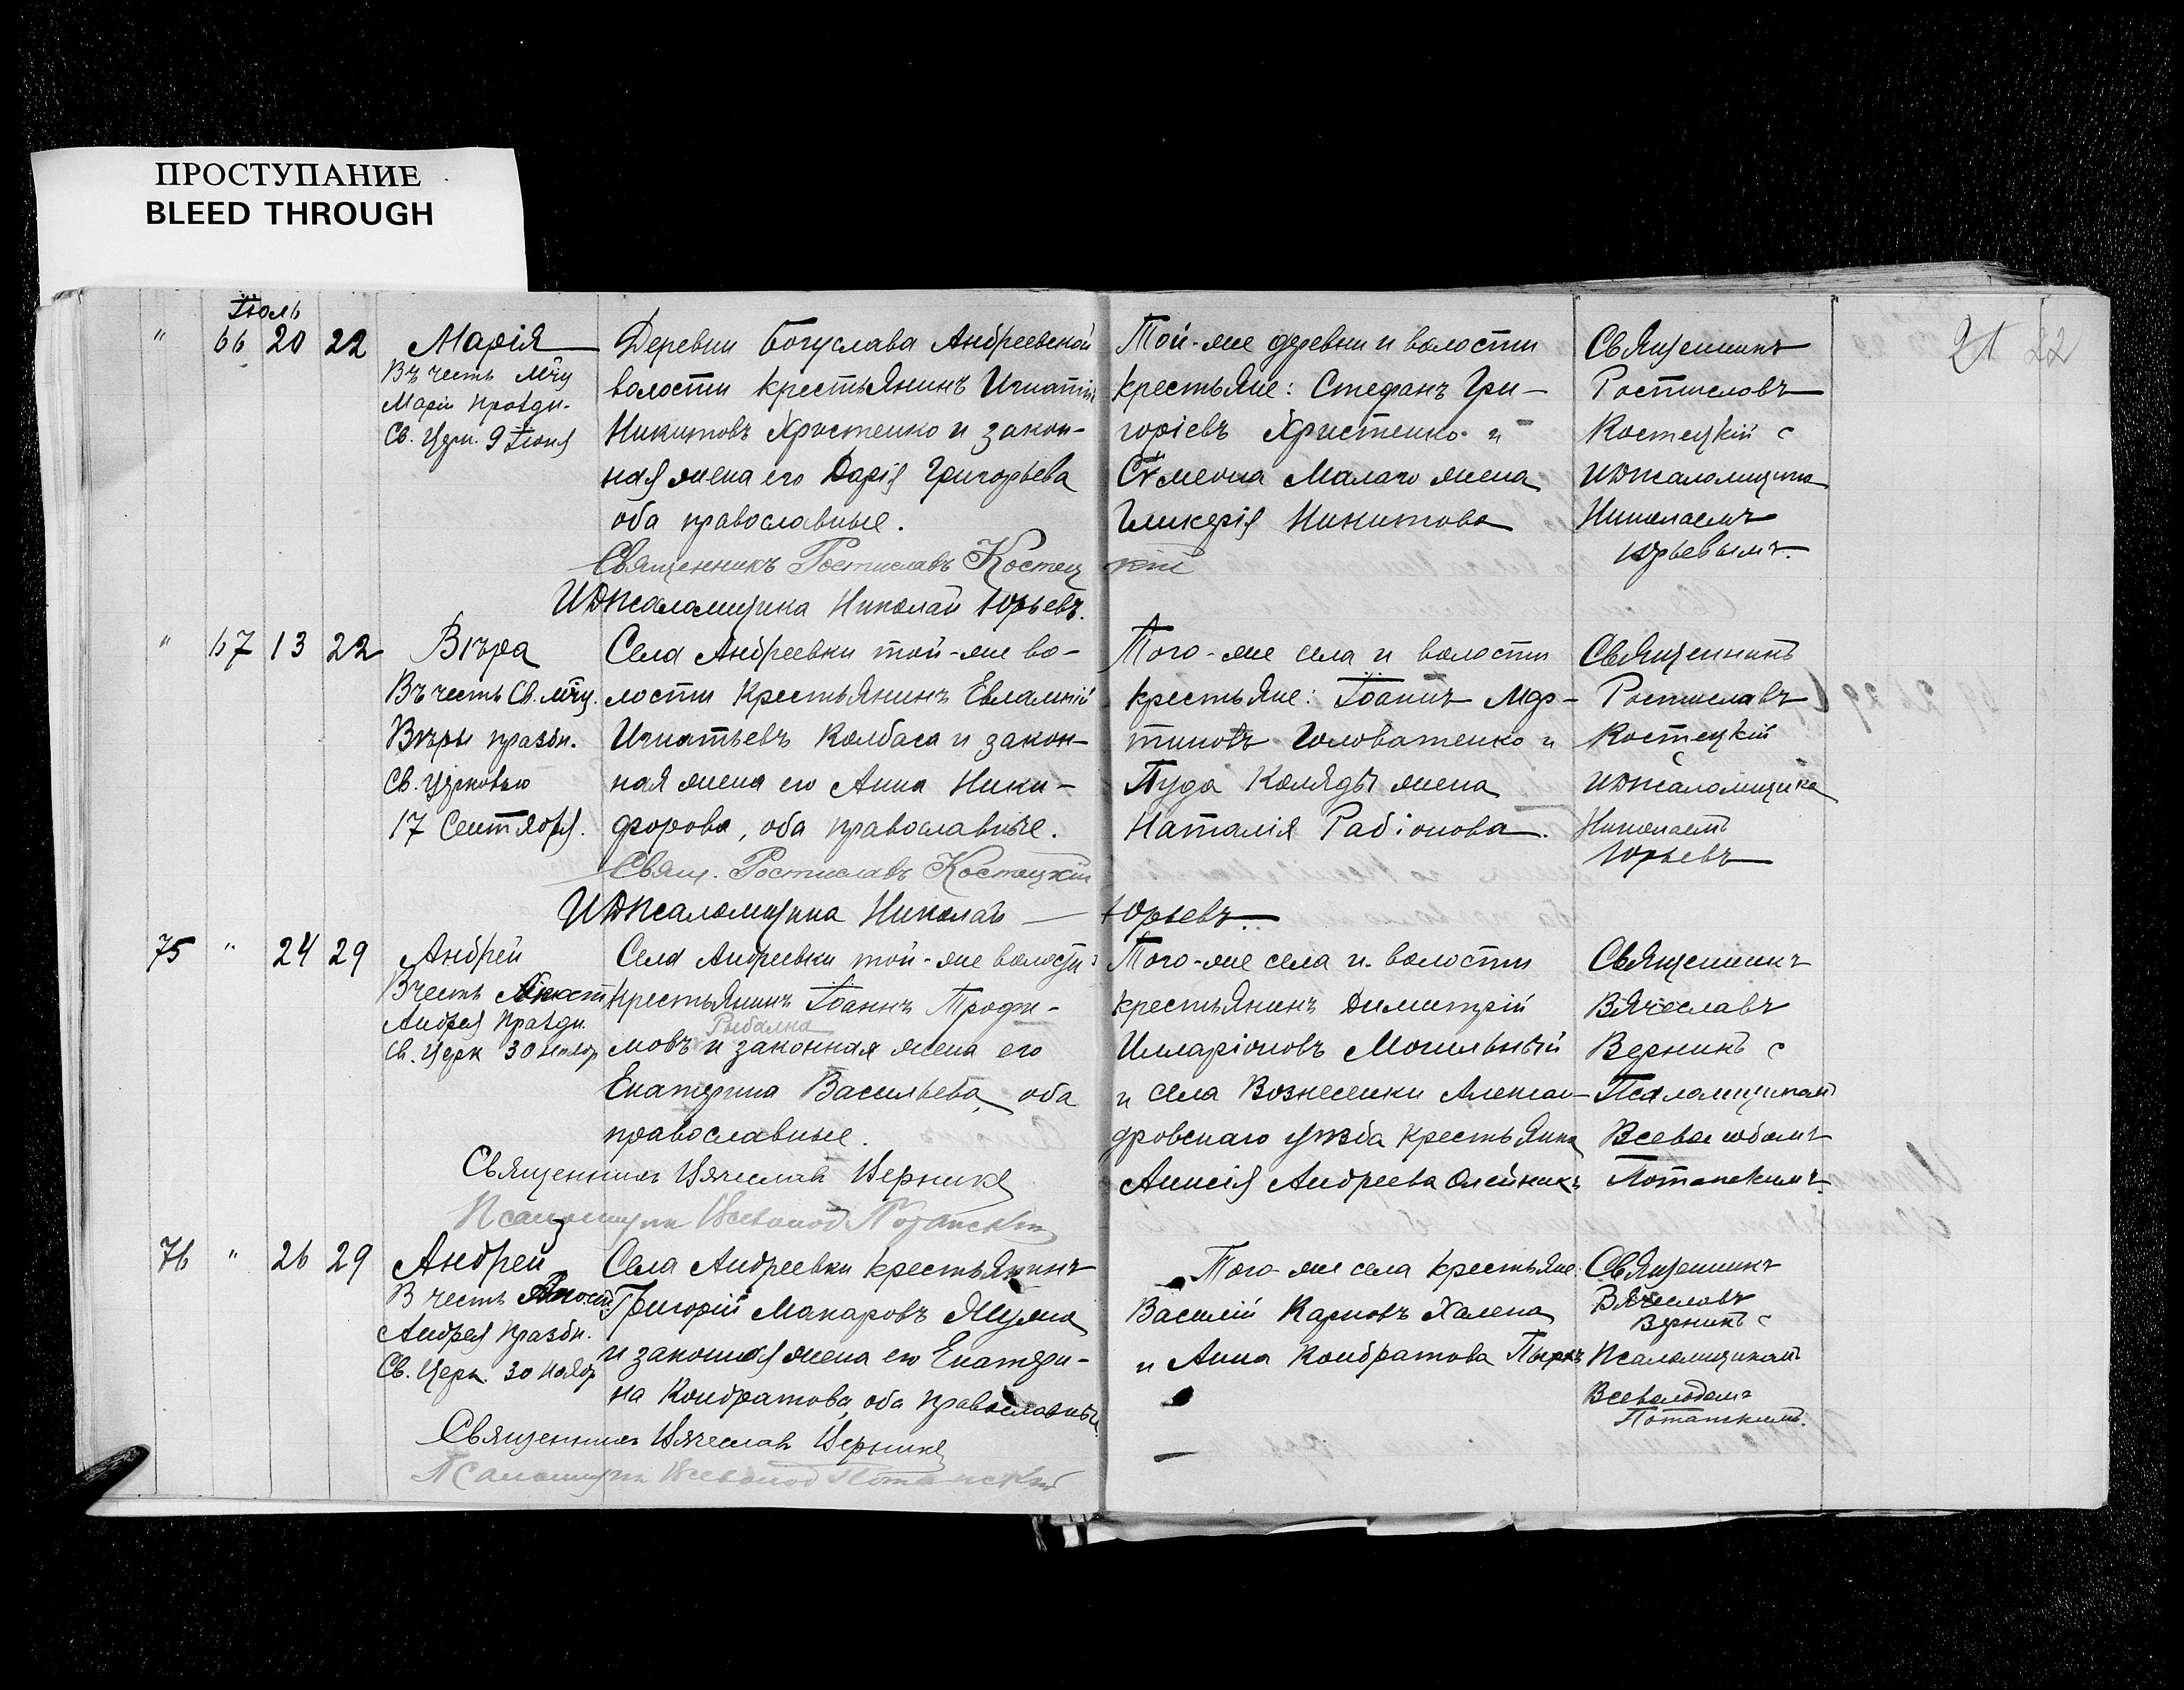 ПРОСТУПАНИЕ
BLEED THROUGH
21 22
Іюль
" 66 20 22
Марія
Въ честь Мчц
Маріи празdн.
Св. Церк. 9 Іюня
Деревни Богуслава Андреевской
волости крестьянинъ Игнатій
Никитовъ Христенко и закон-
ная жена его Дарія Григорьева
оба православные.
Той-же деревни и волости
крестьяне: Стефанъ Гри-
горіевъ Христенко и
Сѵмеона Малаго жена
Гликерія Никитова
Священникъ
Ростиславъ
Костецкій с
ИДПсаломщика
Николаемъ
Юрьевымъ.
Священникъ Ростиславъ Костецкій
ИДПсаломщика Николай Юрьевъ.
" 67 13 22
Вѣра
Въ честь Св. мчц.
Вѣры праздн.
Св. Церковью
17 Сентября.
Села Андреевки той-же во-
лости крестьянинъ Евлампій
Игнатьевъ Колбаса и закон-
ная жена его Анна Ники-
форова, оба православные.
Того-же села и волости
крестьяне: Іоаннъ Мар-
тиновъ Головатенко и
Пуда Коляды жена
Наталія Радіонова.
Священникъ
Ростиславъ
Костецкій
ИДПсаломщика
Николаемъ
Юрьевъ
Свящ. Ростиславъ Костецкій
ИДПсаломщика Николай — Юрьевъ
75 " 24 29
Андрей
В честь Апост
Андрея Праздн.
Св. Церк 30 Ноябр
Села Андреевки той-же волости
крестьянинъ Іоаннъ Трофи-
Рыбалка
мовъ и законная жена его
Екатерина Васильева, оба
православные.
Того-же села и волости
крестьянинъ Димитрій
Илларіоновъ Могильный
и села Вознесенки Алексан-
дровскаго уѣзда крестьянка
Анисія Андреева Олейникъ
Священникъ
Вячеславъ
Верникъ с
Псаломщикомъ
Всеволодомъ
Потапскимъ.
Священникъ Вячеслав Верникъ
Псаломщикъ Всеволод Потапскій
76 " 26 29
Андрей
В честь Апост.
Андрея праздн.
Св. Церк. 30 Ноябр
Села Андреевки крестьянинъ
Григорій Макаровъ
и законная жена его Екатери-
на Кондратова, оба православны
Того же села крестьяне:
Василій Карповъ Халепа
и Анна Кондратова
Священникъ
Вячеславъ
Верникъ с
Псаломщикомъ
Всеволодомъ
Потапскимъ.
Священникъ Вячеслав Верникъ
Псаломщикъ Всеволод Потапскій